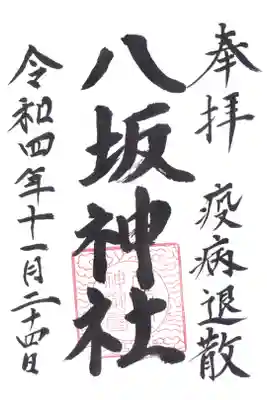 奉拝 疫病退散
八坂神社
令和四年十一月二十四日